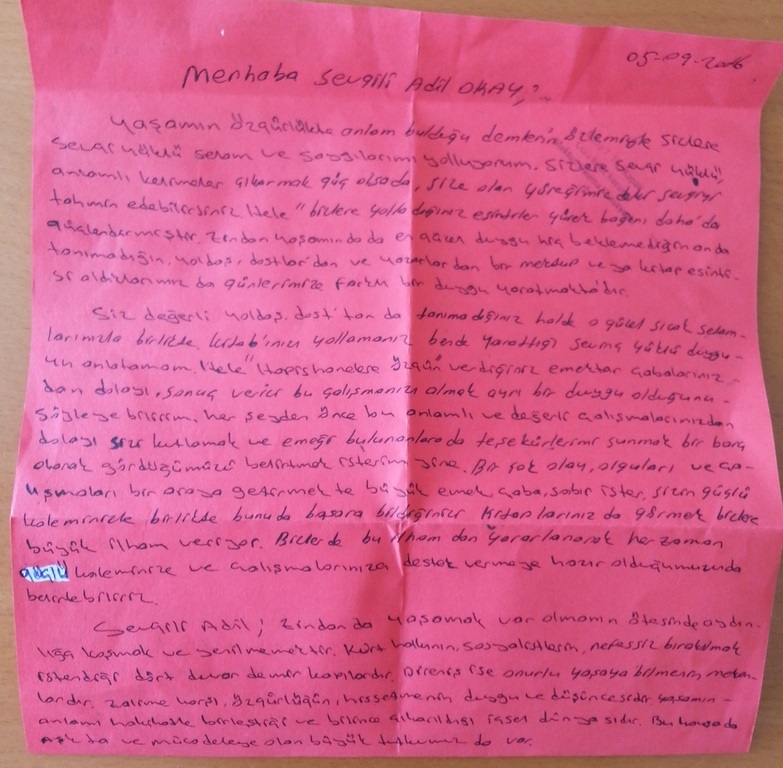 05-09-2016
Merhaba Sevgili Adil OKAY;
Yaşamın Özgürlükte anlam bulduğu demlerin özlemiyle sizlere
sevgi yüklü selam ve saygılarımı yolluyorum. Sizlere sevgi yüklü,
anlamlı kelimeler çıkarmak güç olsada, size olan yüreğimizdeki sevgiyi
tahmin edebilirsiniz. Hele" bizlere yolladığınız esintiler yürek bağını daha'da
güçlendirmiştir. Zindan yaşamında da en güzel duygu hiç beklemediğin anda
tanımadığın, yoldaş, dostlar'dan ve yazarlardan bir mektup veya kitap esinti-
si aldıklarımız da günlerimize farklı bir duygu yaratmakta'dır.
Siz değerli yoldaş, dost'tan da tanımadığınız halde o güzel sıcak selam-
larınızla birlikte, kitab'ınızı yollamanız bende yarattığı sevinç yüklü duygu-
yu anlatamam. Hele" Hapishanelere Özgün verdiğiniz emektar çabalarınız-
dan dolayı, sonuç verici bu çalışmanızı almak ayrı bir duygu olduğunu-
söyleye bilirim. her şeyden önce bu anlamlı ve değerli çalışmalarınızdan
dolayı sizi kutlamak ve emeği bulunanlara da teşekürlerimi sunmak bir borç
olarak gördüğümüzü belirtmek isterim yine. Bir çok olay, olguları ve ça-
lışmaları bir araya getirmek te büyük emek, çaba, sabır ister, sizin güçlü
kaleminizle birlikte bunuda başara bildiğinizi kitaplarınız da görmek bizlere
büyük ilham veriyor. Bizlerde bu ilham dan yararlanarak herzaman
güçlü kaleminize ve çalışmalarınıza destek vermeye hazır olduğumuzuda
belirtebiliriz.
Sevgili Adil; Zindan da yaşamak var olmanın ötesinde aydın-
lığa koşmak ve yenilmemektir. Kürt halkının, sosyalistlerin, nefessiz bırakılmak
istendiği dört duvar demir kapılardır. Direniş ise onurlu yaşaya bilmenin mekan-
lardır. Zulme karşı, özgürlüğün, hissetmenin duygu ve düşüncesidir yaşamın-
anlamı hakikatle birleştiği ve bilince çıkarıldığı içsel dünya sıdır. Bu konuda
aşkta ve mücadeleye olan büyük tutkumuz da var.